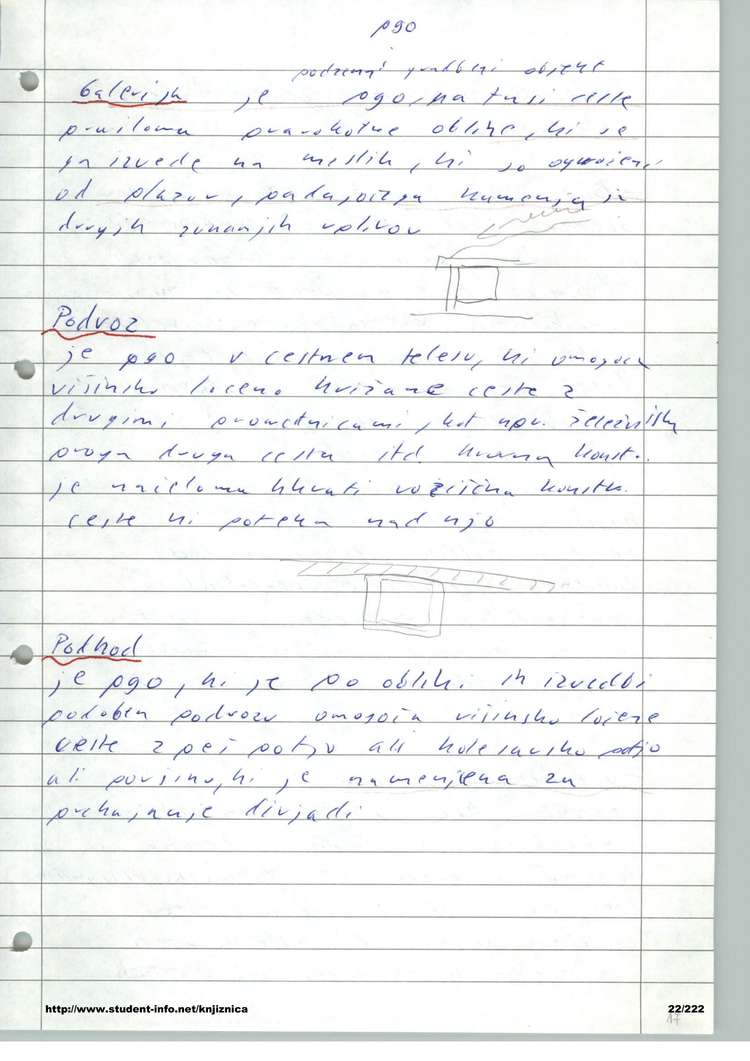 pgo
podzemni gradbeni objekt
Galerija je pgo, na trasi ceste
praviloma pravokotne oblike, ki se
ga izvede na mestih, ki so ogrožena
od plazov, padajočega kamenja in
drugih zunanjih vplivov
Podvoz
je pgo v cestnem telesu, ki omogoča
višinsko ločeno križanje ceste z
drugimi prometnicami, kot npr. železniška
proga druga cesta itd. konst.
je načeloma hkrati voziščna konstr.
ceste ki poteka nad njo
Podhod
je pgo, ki je po obliki in izvedbi
podoben podvozu omogoča višinsko ločene
ceste z peš potjo ali kolesarsko potjo
ali površino, ki je namenjena za
prehajanje divjadi
http://www.student-info.net/knjiznica
22/222
17